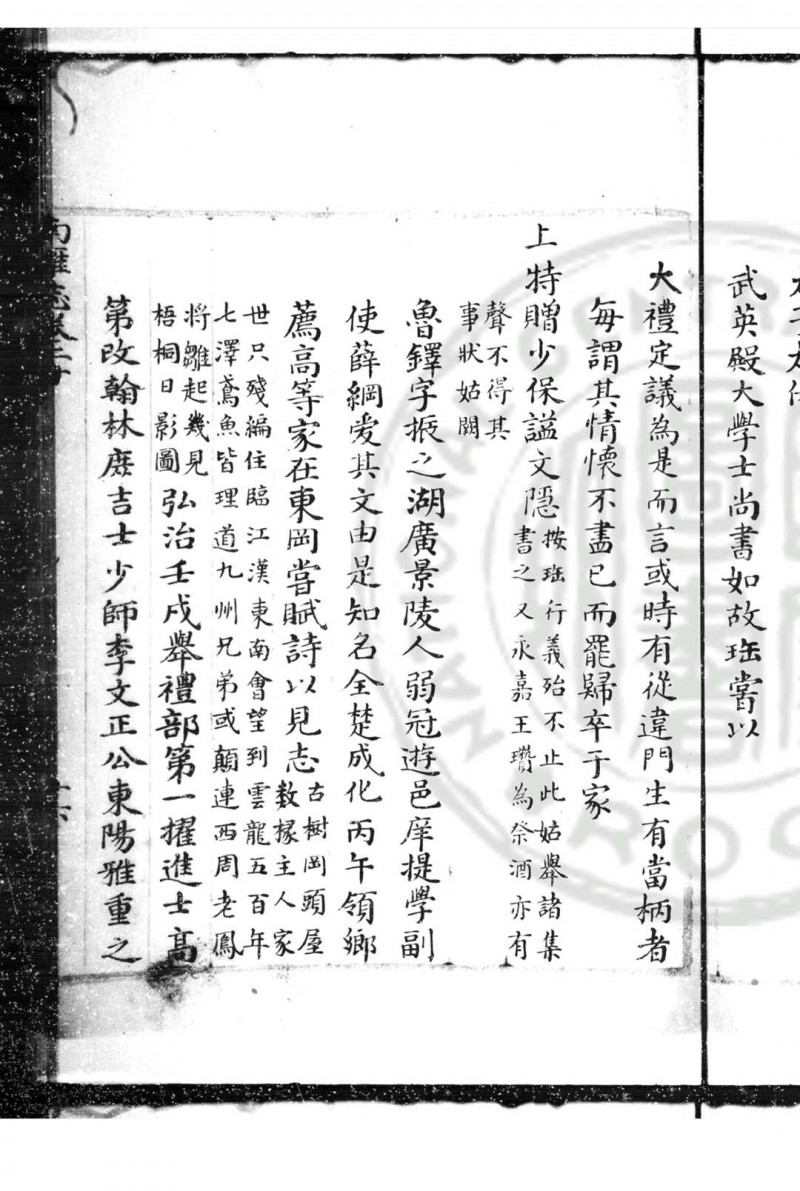 武英殿大學士尚書如故珤嘗以
大禮定議為是而言或時有從違門生有當柄者
每謂其情懷不盡已而罷歸卒于家
上特贈少保謚文隱按珤行義殆不止此姑舉諸集
書之又永嘉王瓚為祭酒亦有
聲不得其
事狀姑闕
魯鐸字振之湖廣景陵人弱冠遊邑庠提學副
使薛綱愛其文由是知名全楚成化丙午領鄉
薦高等家在東岡嘗賦詩以見志古樹岡頭屋
數椽主人家
世只殘編住臨江漢東南會望到雲龍五百年
七澤鳶魚皆理道九州兄弟或顛連西周老鳳
將雛起幾見
梧桐日影圖弘治壬戌舉禮部第一擢進士高
第改翰林庶吉士少師李文正公東陽雅重之
南雍志卷